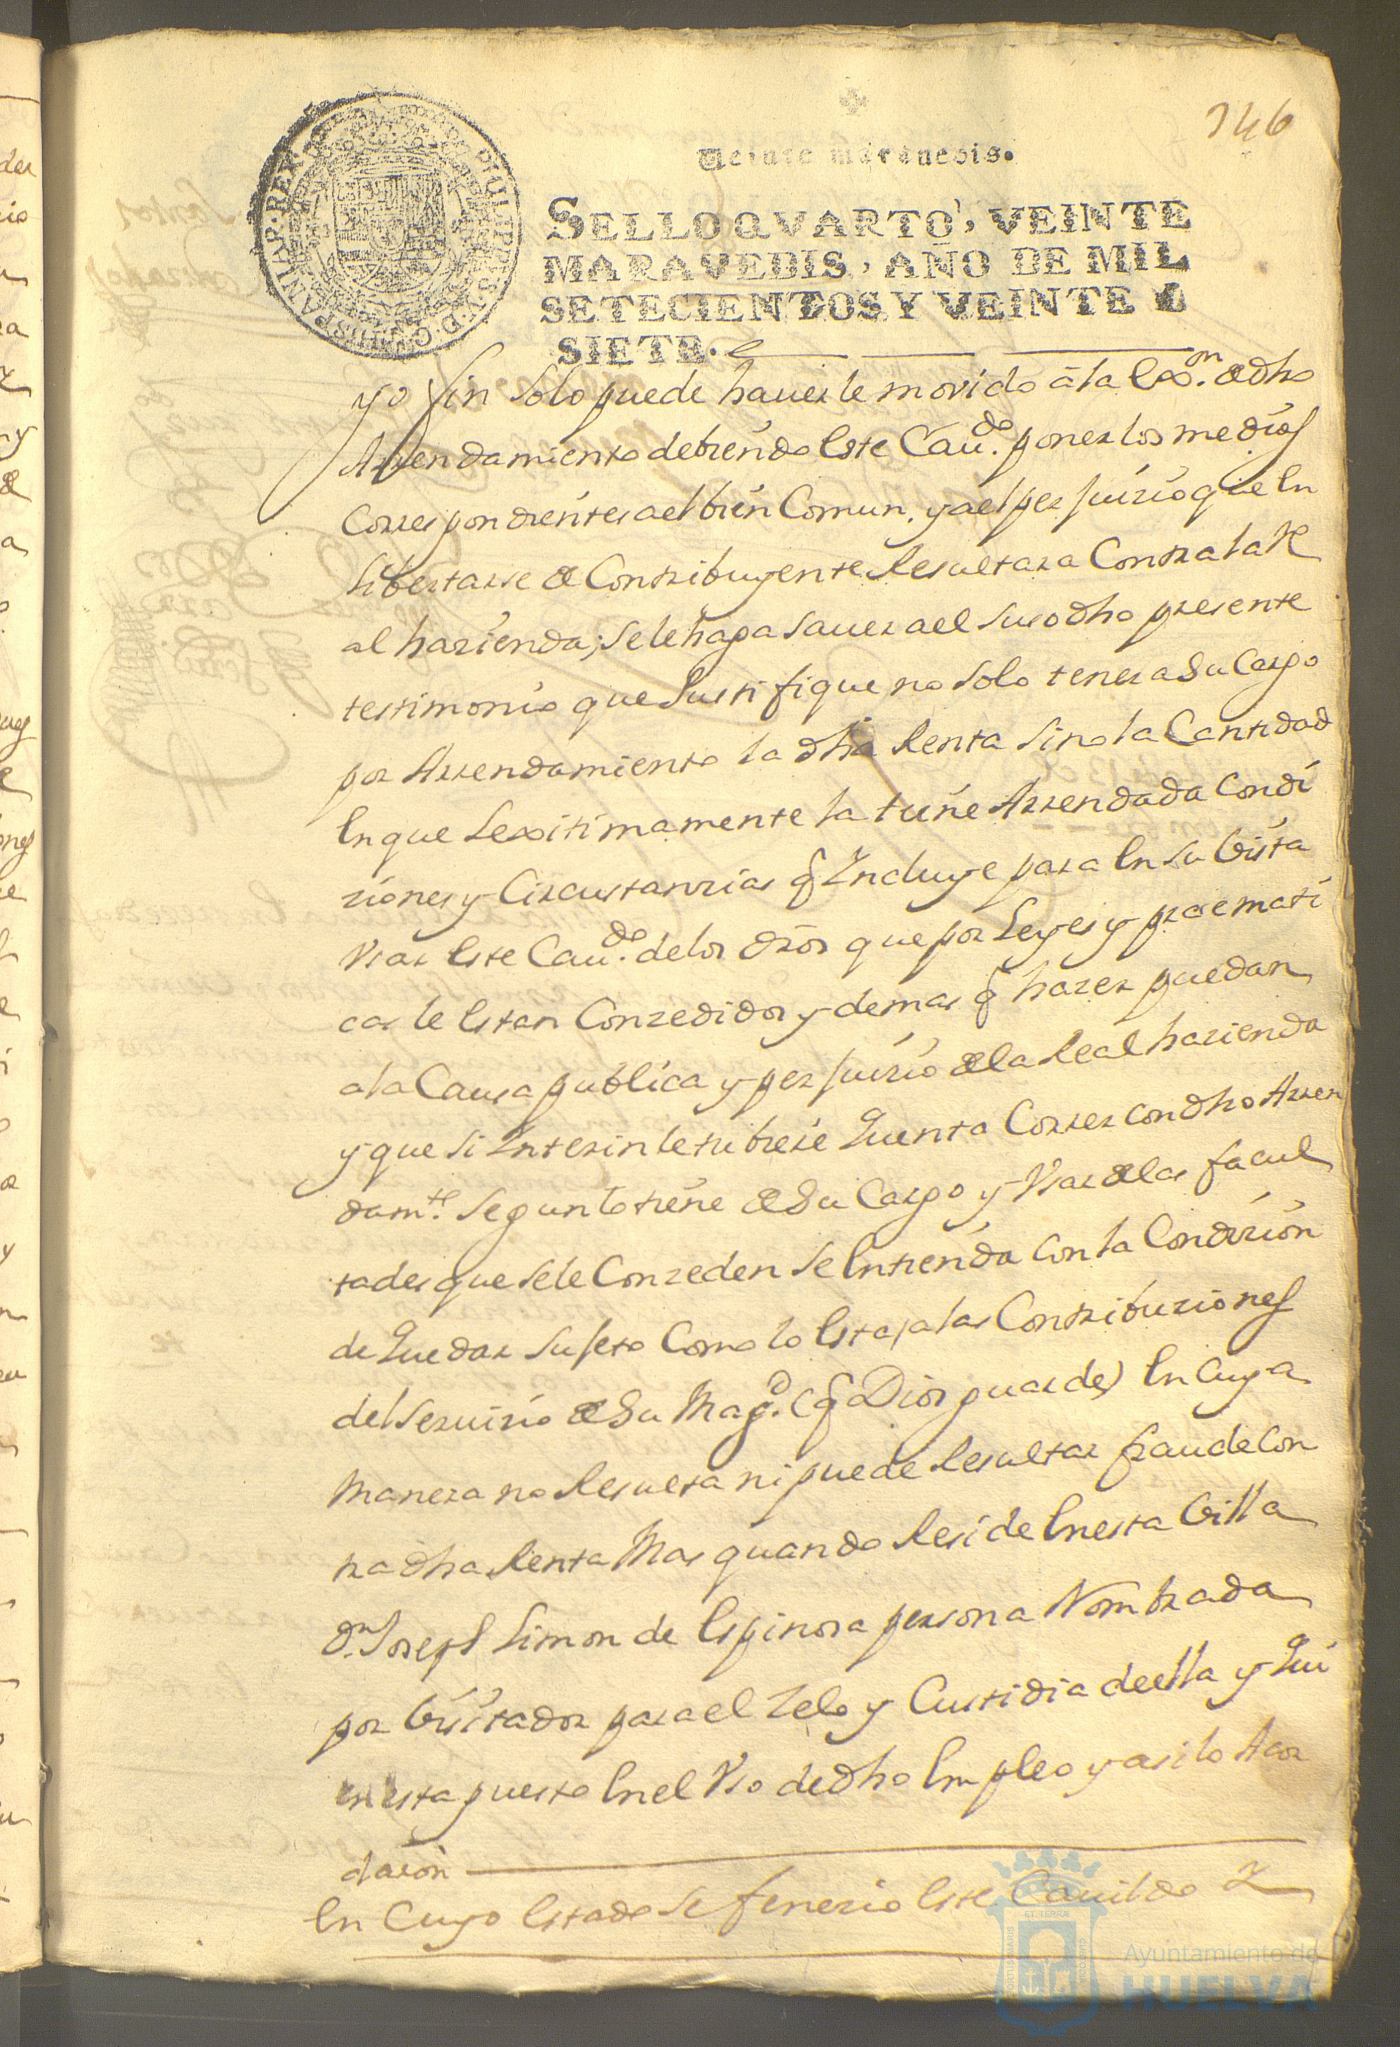 346
Veinte marauedis.
SELLO QVARTO, VEINTE
MARAVEDIS, AÑO DE MIL
SETECIENTOS Y VEINTE Y
SIETE.
PHILIPPVS V D G HISPANIAR REX
yo fin solo puede hauerle movido â la exon. de dho
Arrendamiento debiendo este Caudo. poner los medios
Correspondientes ael bien Comun. y a el perjuizio que en
libertarse de Contribuyente Resultara Contra la Re
al hazienda; se le haga sauer a el susodho presente
testimonio que Justifique no solo tener a su Cargo
por Arrendamiento la dha Renta sino la Cantidad
en que Lexitimamente la tiene Arrendada condi
ziones y Circustanzias q Incluye para en su bista
Vsar este Caudo. de los dros que por Leyes y precmati
cas le estan Conzedidos y demas q hazer puedan
a la Causa publica y perjuizio de la Real hazienda
y que si Interin le tubiere quenta Correr con dho Arren
damte. segun lo tiene de su Cargo y Vsar de las facul
tades que se le Conzeden se entienda con la Condizion
de quedar sujeto Como lo esta, a las Contribuziones
del seruizio de su Magd. (q Dios guarde) en cuya
Manera no Resulta ni puede Resultar fraude con
tra dha Renta Mas quando Reside en esta billa
Dn. Joseph Simon de Espinosa persona Nombrada
por bisitador para el zelo y Custidia de ella y qui
en esta puesto en el Vso de dho empleo y asi lo Acor
daron
en Cuyo estado se fenezio este Cauildo
Ayuntamiento de
HUELVA